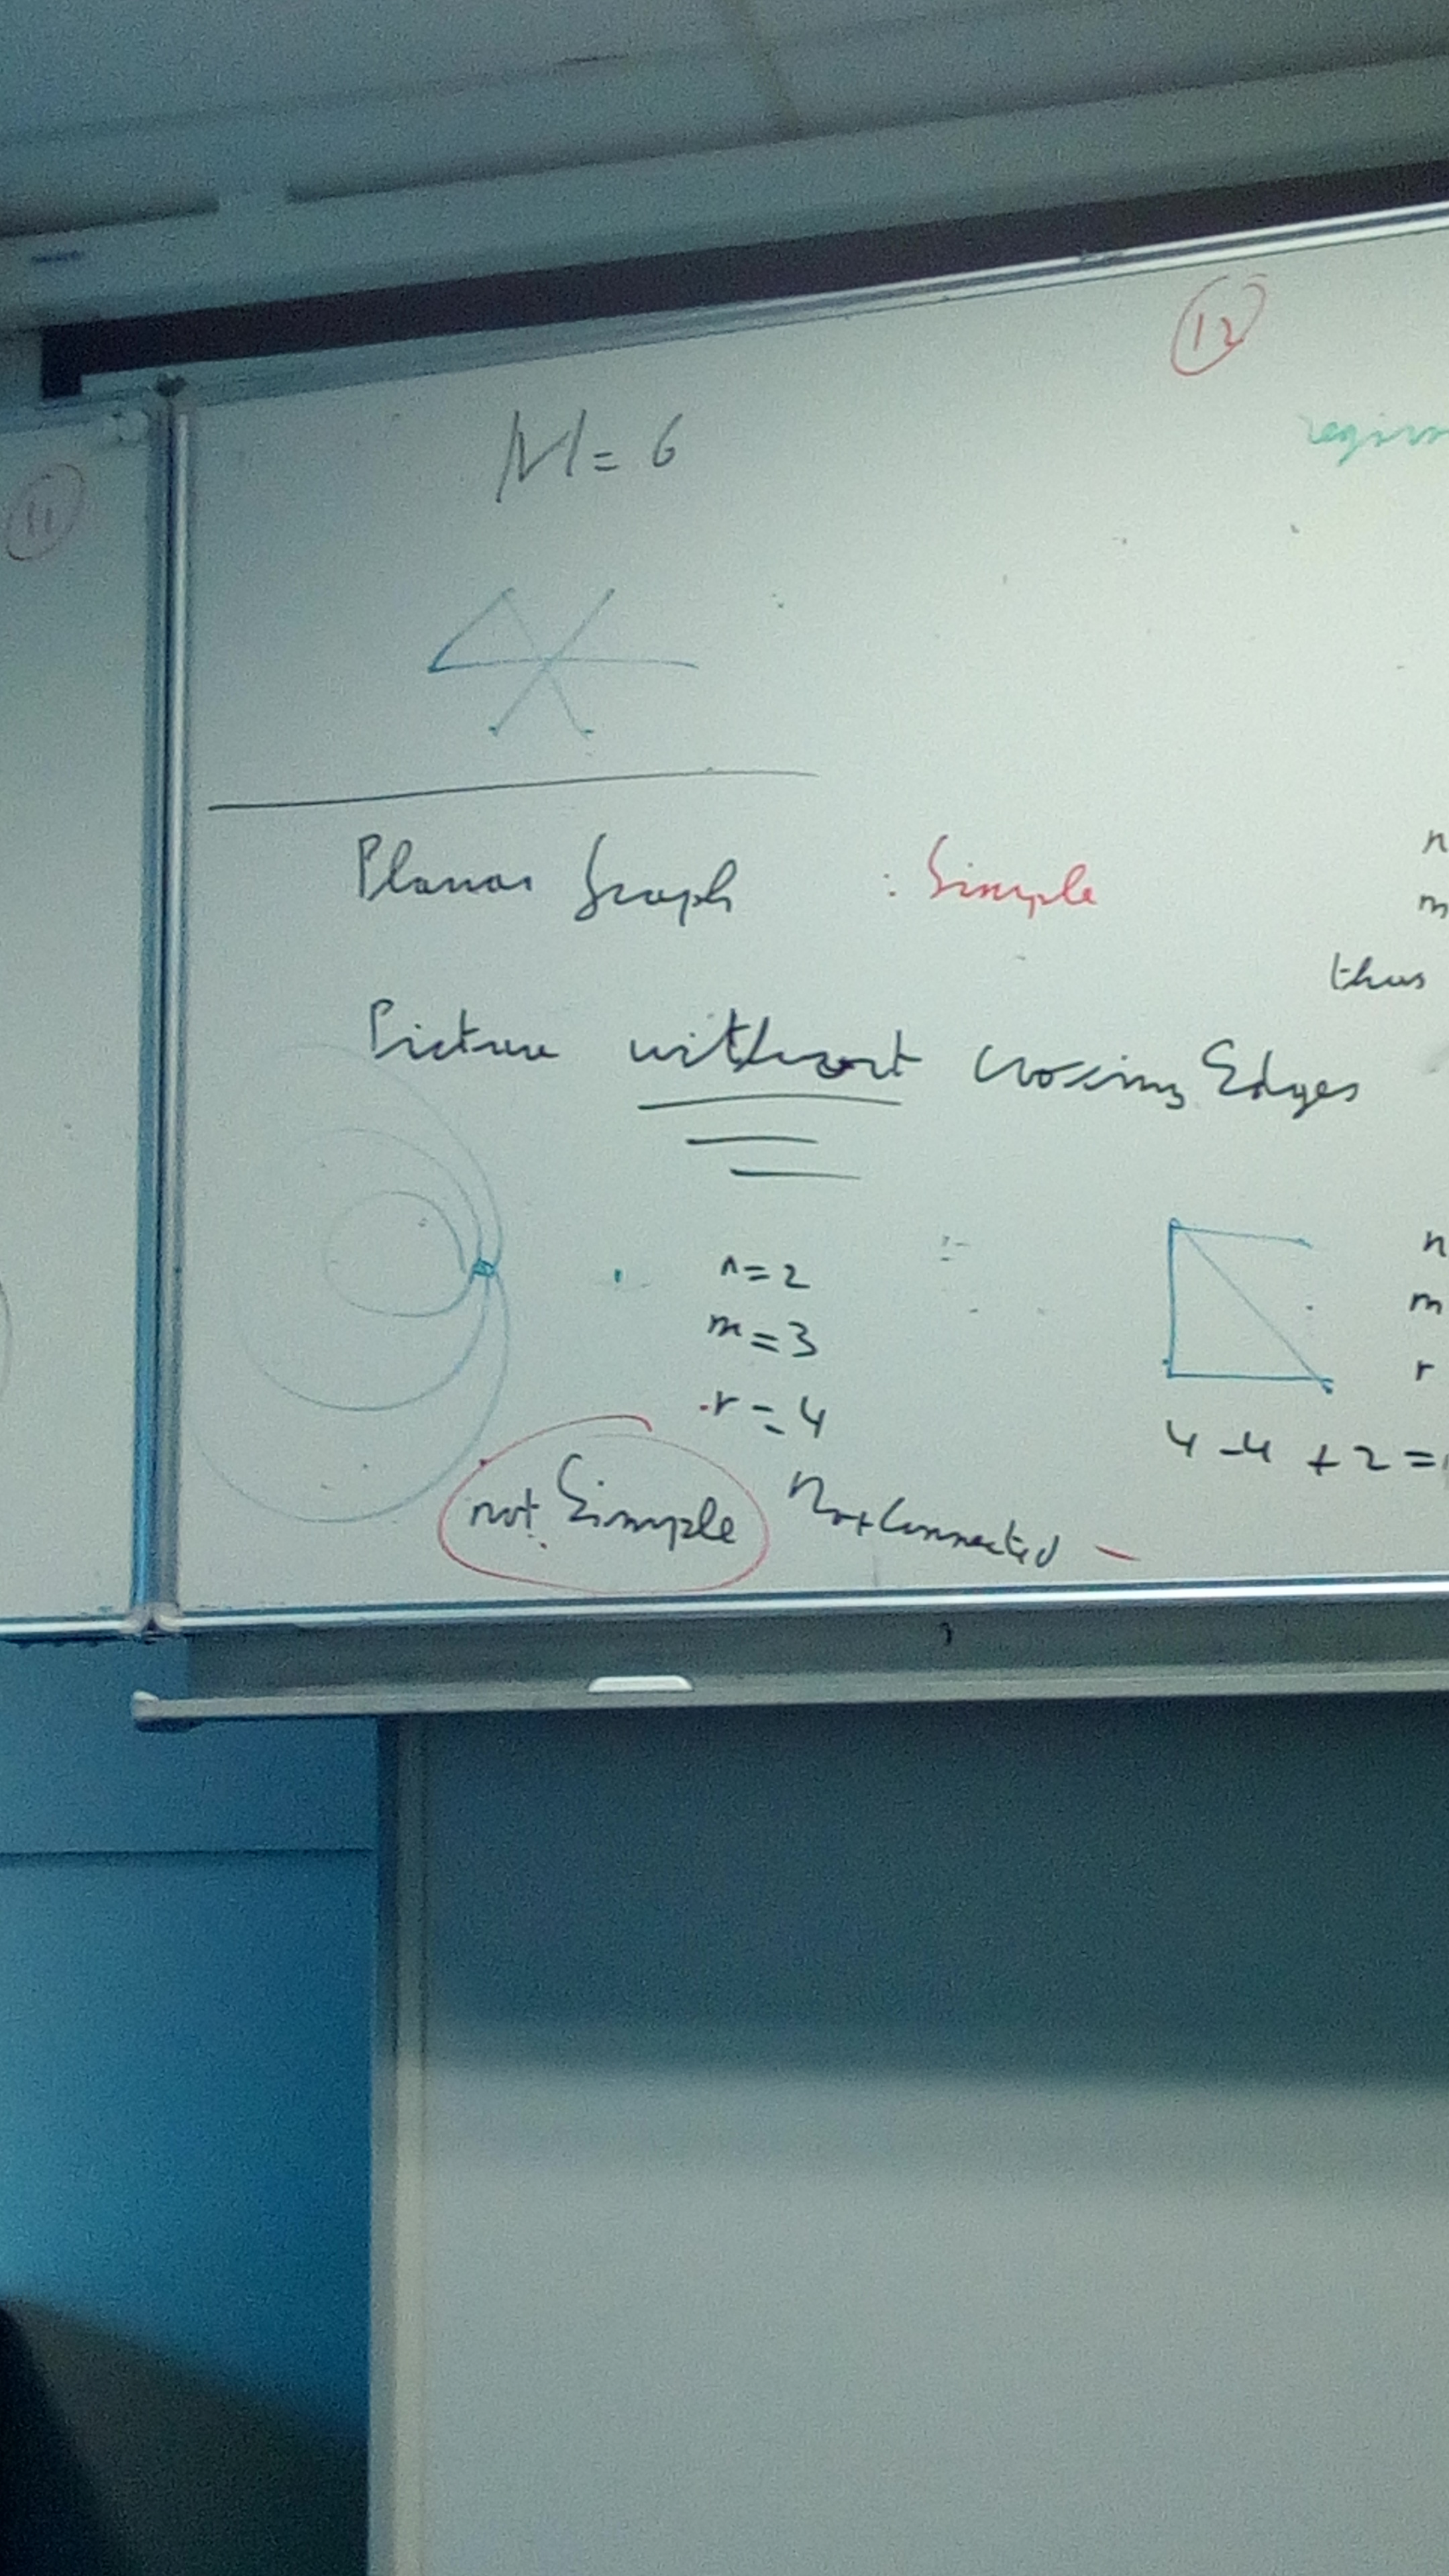 11
12
M = 6
Planar Graph : Simple
n
m
thus
Picture without crossing Edges
n = 2
m = 3
r = 4
not Simple Not Connected
n
m
r
4 - 4 + 2 =